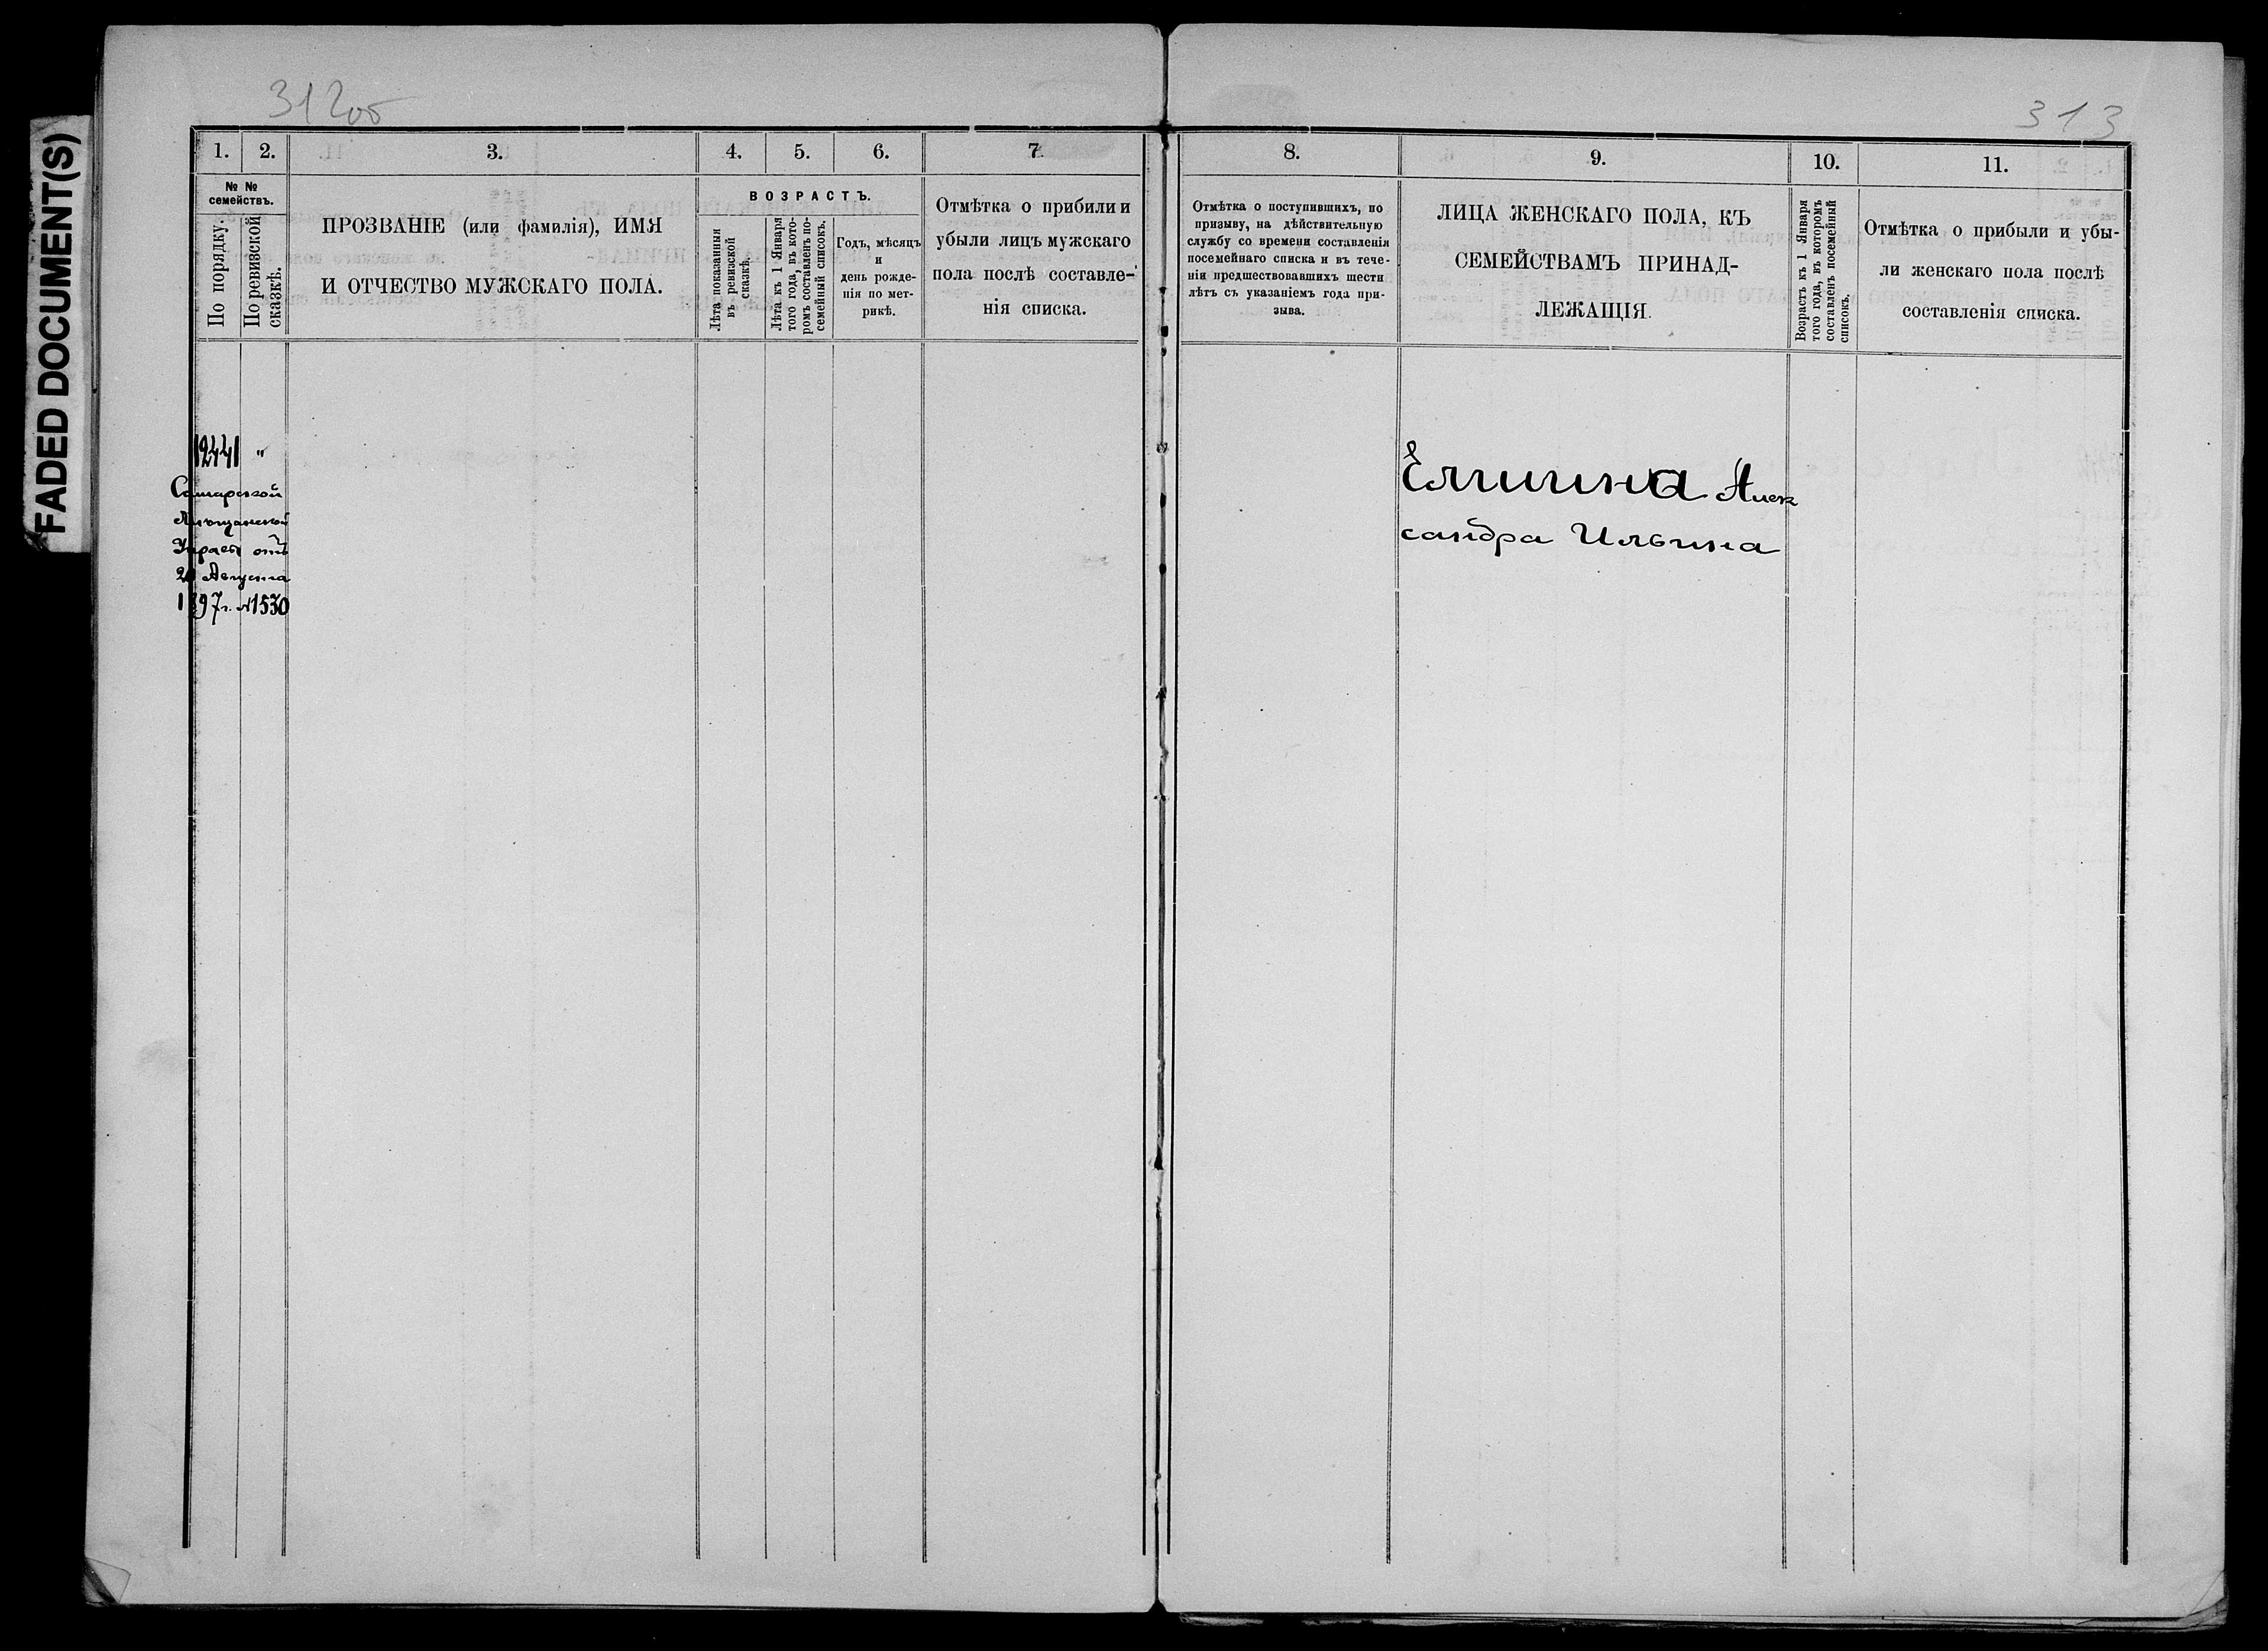 FADED DOCUMENT(S)
312об
313
1. 2. 3. 4. 5. 6. 7.
№ №
семействъ.
По порядку.
По ревизской
сказкѣ.
ПРОЗВАНІЕ (или фамилія), ИМЯ
И ОТЧЕСТВО МУЖСКАГО ПОЛА.
ВОЗРАСТЪ.
Лѣта показанныя
въ ревизской
сказкѣ.
Лѣта къ 1 Января
того года, въ кото-
ромъ составленъ по-
семейный списокъ.
Годъ, мѣсяцъ
и
день рожде-
нія по мет-
рикѣ.
Отмѣтка о прибили и
убыли лицъ мужскаго
пола послѣ составле-
нія списка.
8. 9. 10. 11.
Отмѣтка о поступившихъ, по
призыву, на дѣйствительную
службу со времени составленія
посемейнаго списка и въ тече-
ніи предшествовавшихъ шести
лѣтъ съ указаніемъ года при-
зыва.
ЛИЦА ЖЕНСКАГО ПОЛА, КЪ
СЕМЕЙСТВАМЪ ПРИНАД-
ЛЕЖАЩІЯ.
Возрастъ къ 1 Января
того года, въ которомъ
составленъ посемейный
списокъ.
Отмѣтка о прибыли и убы-
ли женскаго пола послѣ
составленія списка.
12441 "
Самарской
Мѣщанской
Управы отъ
Августа
1897г. №1530
Алек
сандра Ильина